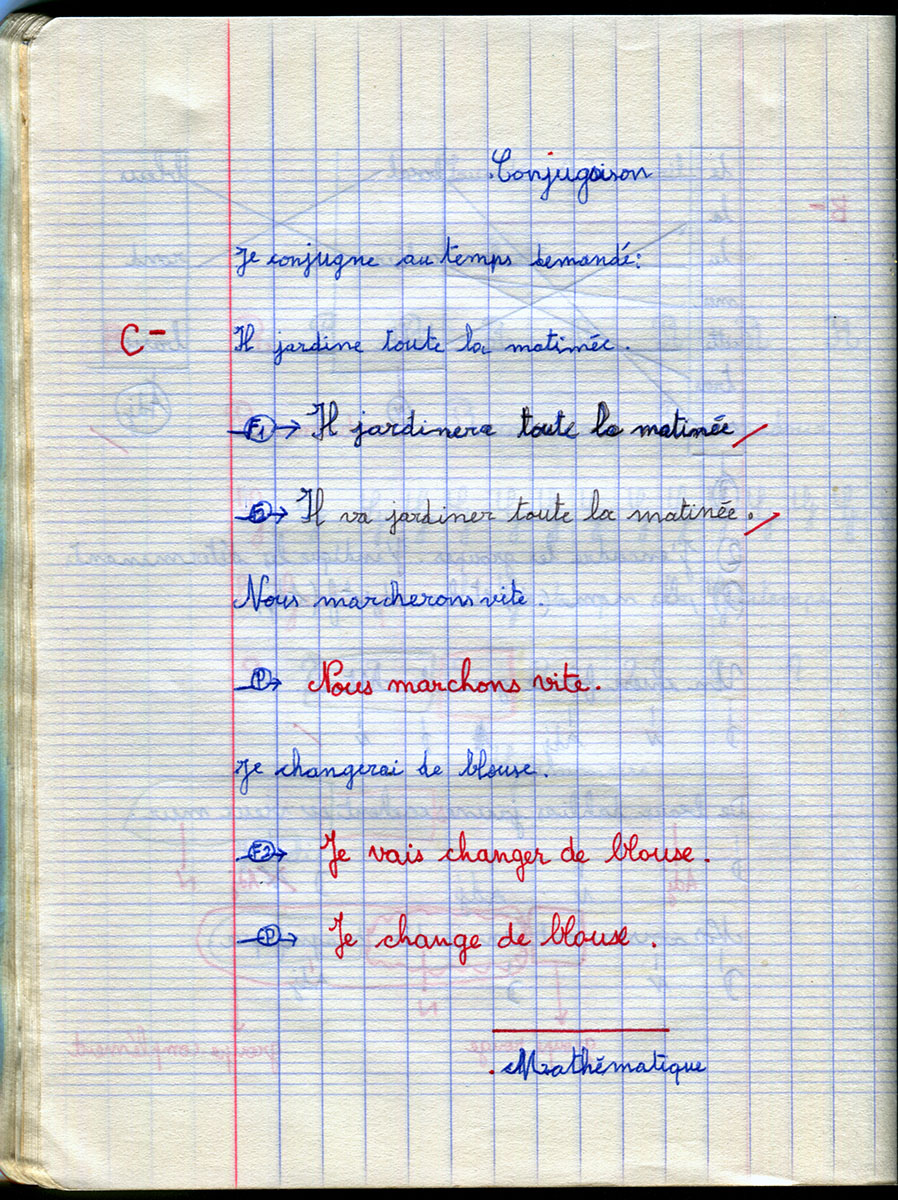 Conjugaison
Je conjugne au temps demandé:
C-
Il jardine toute la matinée.
F1 → Il jardinera toute la matinée
F2 → Il va jardiner toute la matinée.
Nous marcherons vite.
P → Nous marchons vite.
Je changerai de blouse.
F2 → Je vais changer de blouse.
P → Je change de blouse.
Mathématique